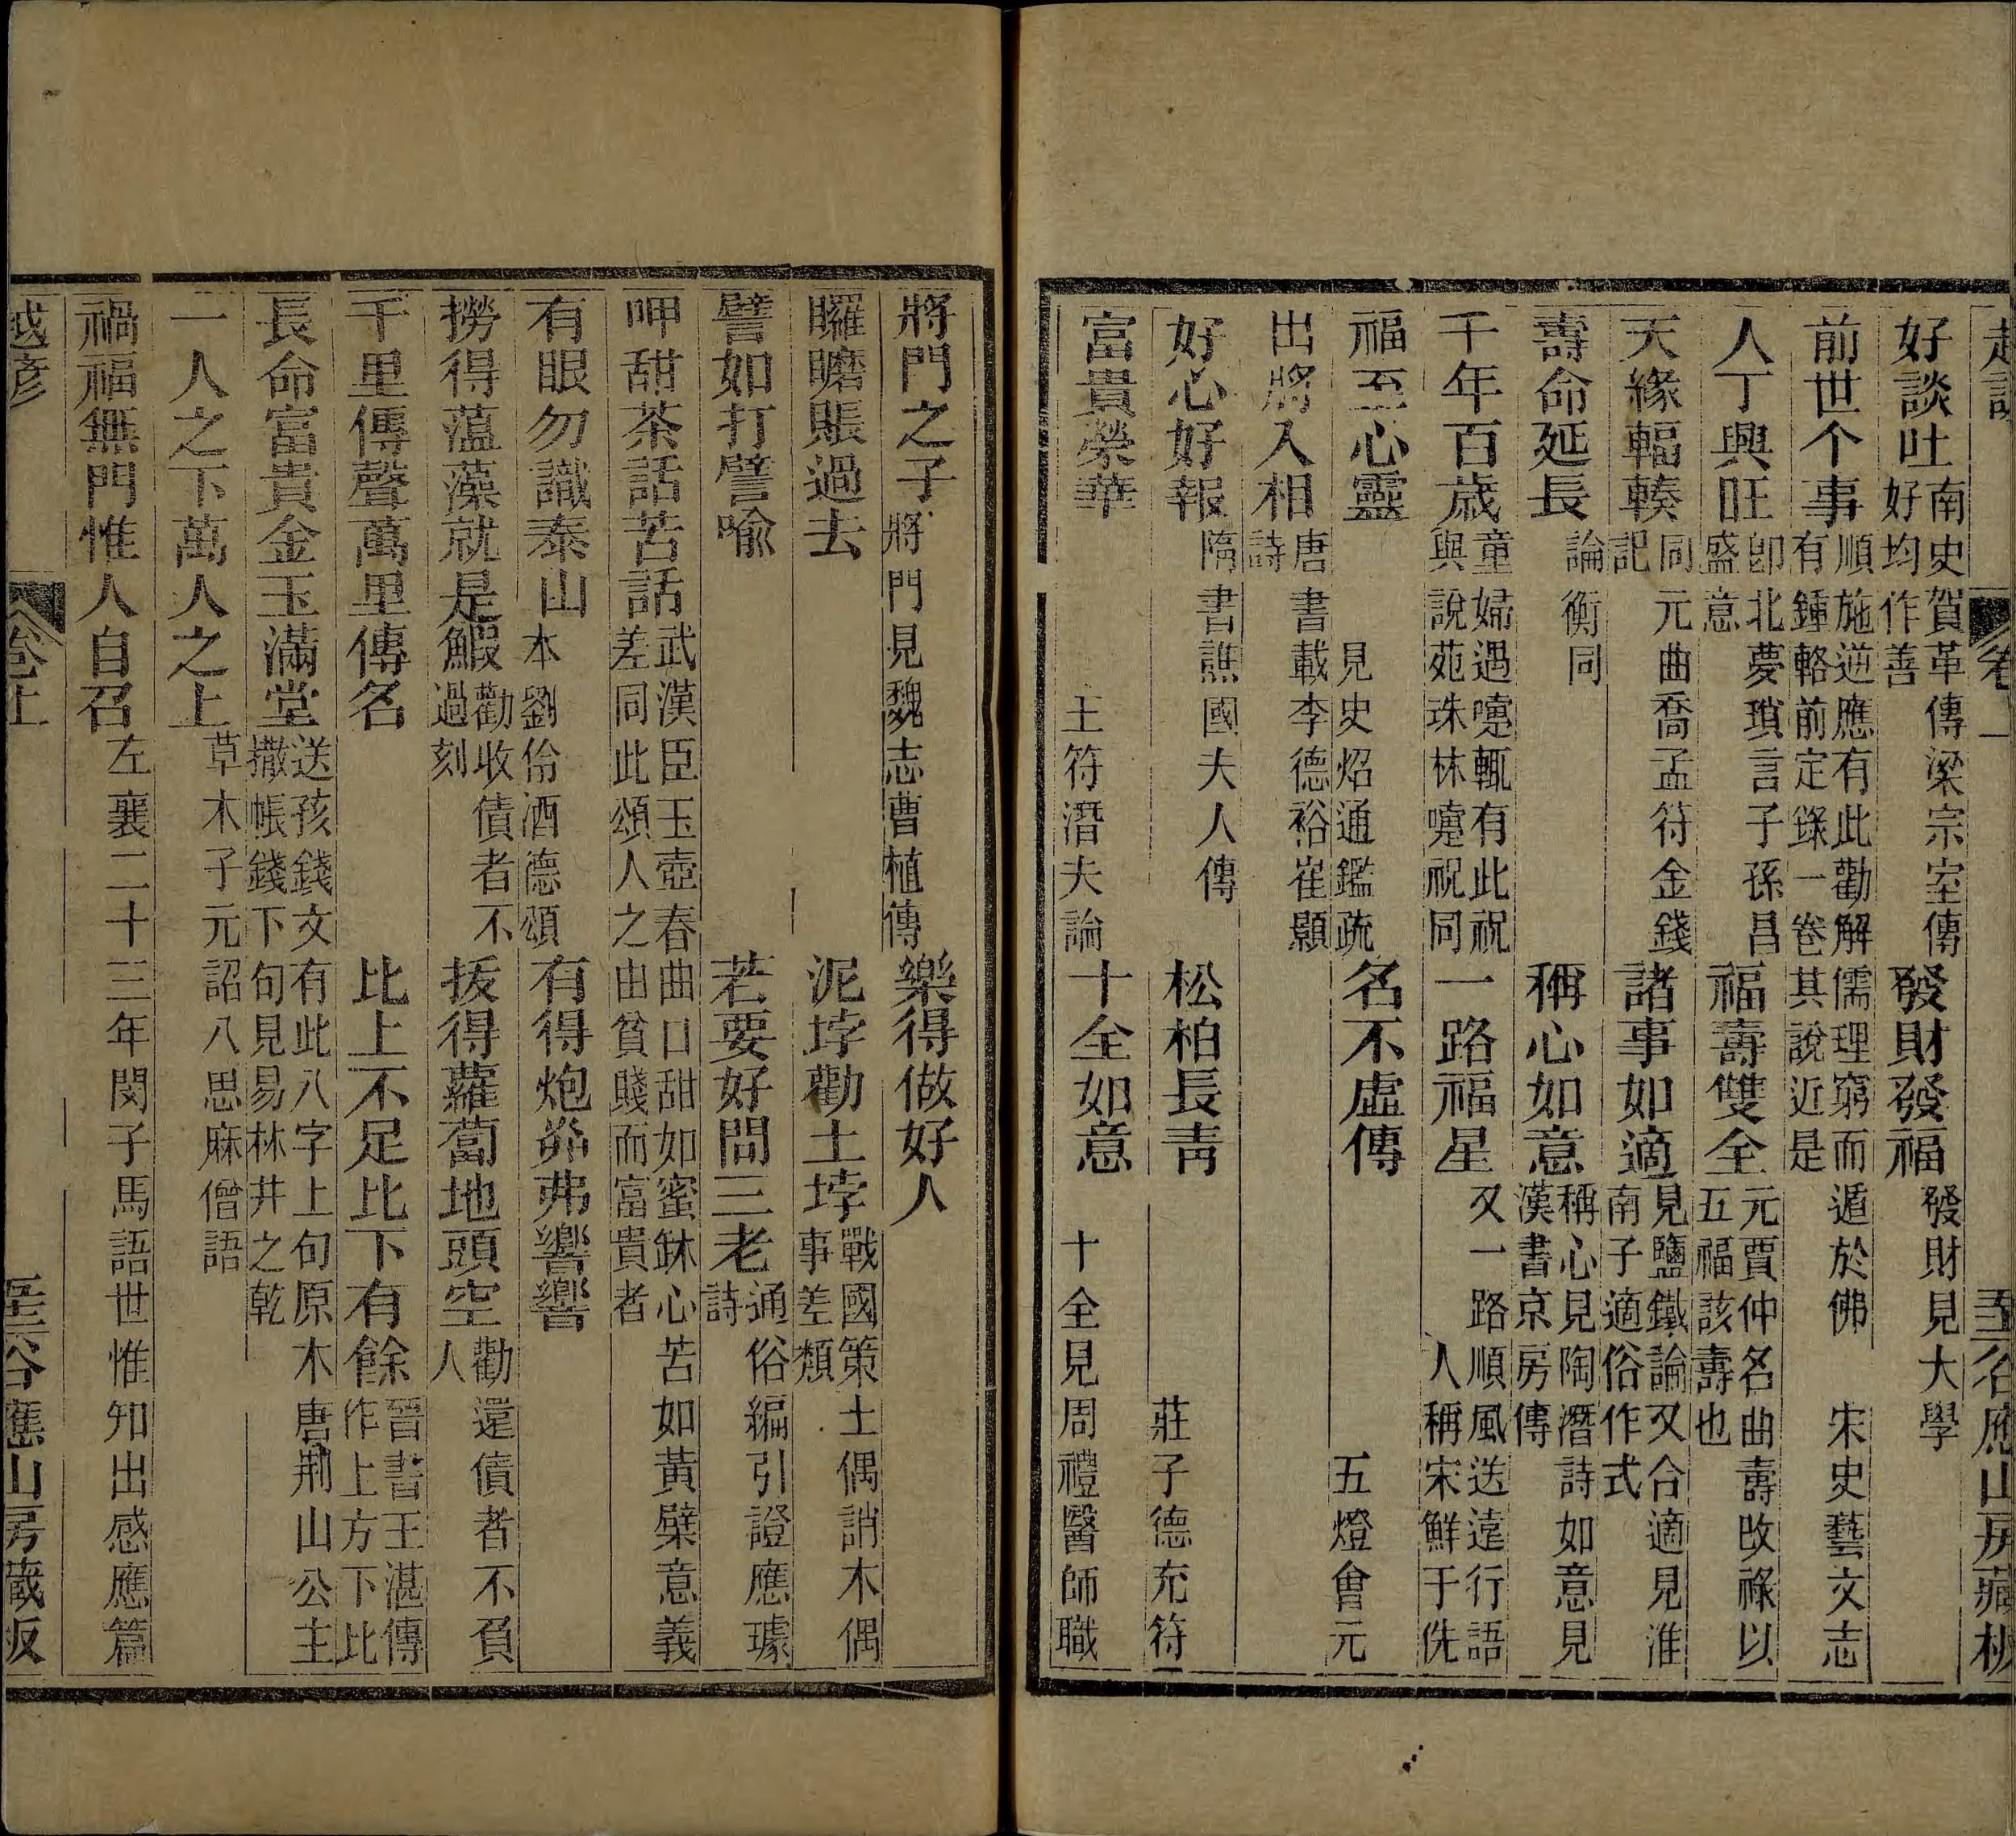 好談吐南史賀革傳梁宗室傳好均作善 發財發福發財見大學
前世个事順施逆應有此勸解有鍾輅前定錄一卷儒理窮而遁於佛其說近是 宋史藝文志
人丁興旺卽北夢瑣言子孫昌盛意 福壽雙全元賈仲名曲壽改祿以五福該壽也
天緣輻輳同元曲喬孟符金錢記 諸事如適見鹽鐵論又合適見淮南子適俗作式
壽命延長論衡同 稱心如意稱心見陶潛詩如意見漢書京房傳
千年百歲童婦遇嚏輒有此祝與說苑珠林嚏祝同 一路福星又一路順風送遠行語人稱宋鮮于侁
福至心靈見史炤通鑑疏 名不虛傳五燈會元
出將入相唐書載李德裕崔顥詩
好心好報隋書譙國夫人傳 松柏長靑莊子德充符
富貴榮華王符潛夫論 十全如意十全見周禮醫師職
將門之子將門見魏志曹植傳 樂得做好人
矖瞻賬過去 泥垶勸土垶戰國策土偶誚木偶事差類
譬如打譬喻 若要好問三老通俗編引證應璩詩
呷甜茶話苦話武漢臣玉壺春曲口甜如蜜鉢心苦如黃檗意義差同此頌人之由貧賤而富貴者
有眼勿識泰山本劉伶酒德頌 有得炮𤆬弗響響
撈得薀藻就是鰕勸收債者不過刻 拔得蘿蔔地頭空勸還債者不負人
千里傳聲萬里傳名 比上不足比下有餘晉書王湛傳作上方下比
長命富貴金玉滿堂送孩錢文有此八字上句原木唐荆山公主撒帳錢下句見易林井之乾
一人之下萬人之上草木子元詔八思麻僧語
禍福無門惟人自召左襄二十三年閔子馬語世惟知出感應篇
越彥 卷上 應山房藏板